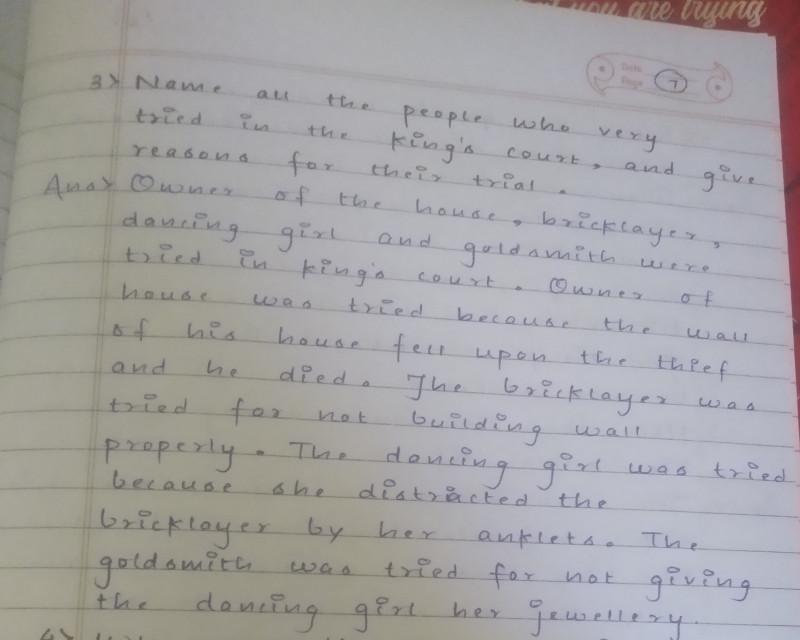 you are trying
Date
Page 7
3> Name all the people who very
tried in the king's court, and give
reasons for their trial.
Ans> Owner of the house, bricklayer,
dancing girl and goldsmith were
tried in king's court. Owner of
house was tried because the wall
of his house fell upon the thief
and he died. The bricklayer was
tried for not building wall
properly. The dancing girl was tried
because she distracted the
bricklayer by her anklets. The
goldsmith was tried for not giving
the dancing girl her jewellery.
4>